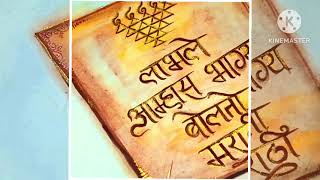 लाभले
आम्हास भाग्य
बोलतो
मराठी
KINEMASTER